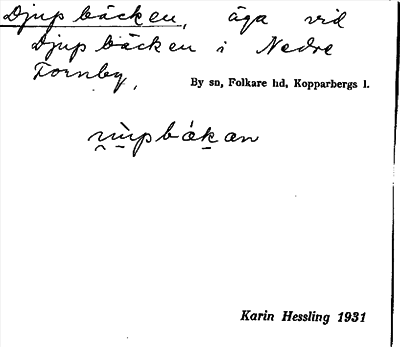 Djupbäcken, äga vid
Djupbäcken i Nedre
Fornby,
By sn, Folkare hd, Kopparbergs l.
Karin Hessling 1931